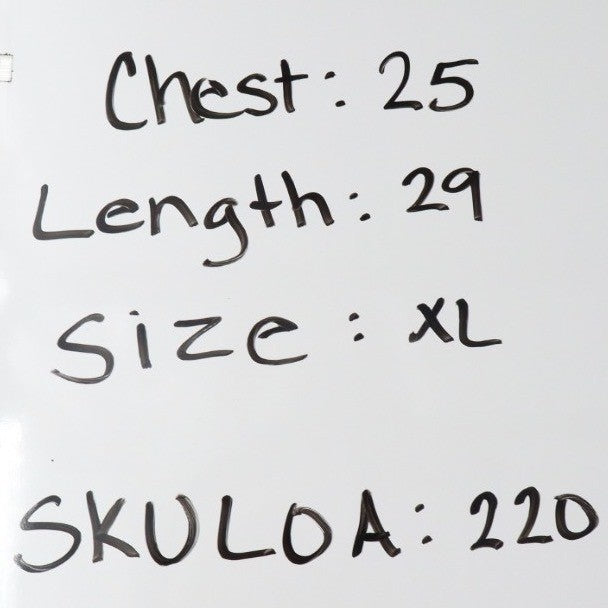 Chest: 25
Length: 29
Size: XL
SKULOA: 220